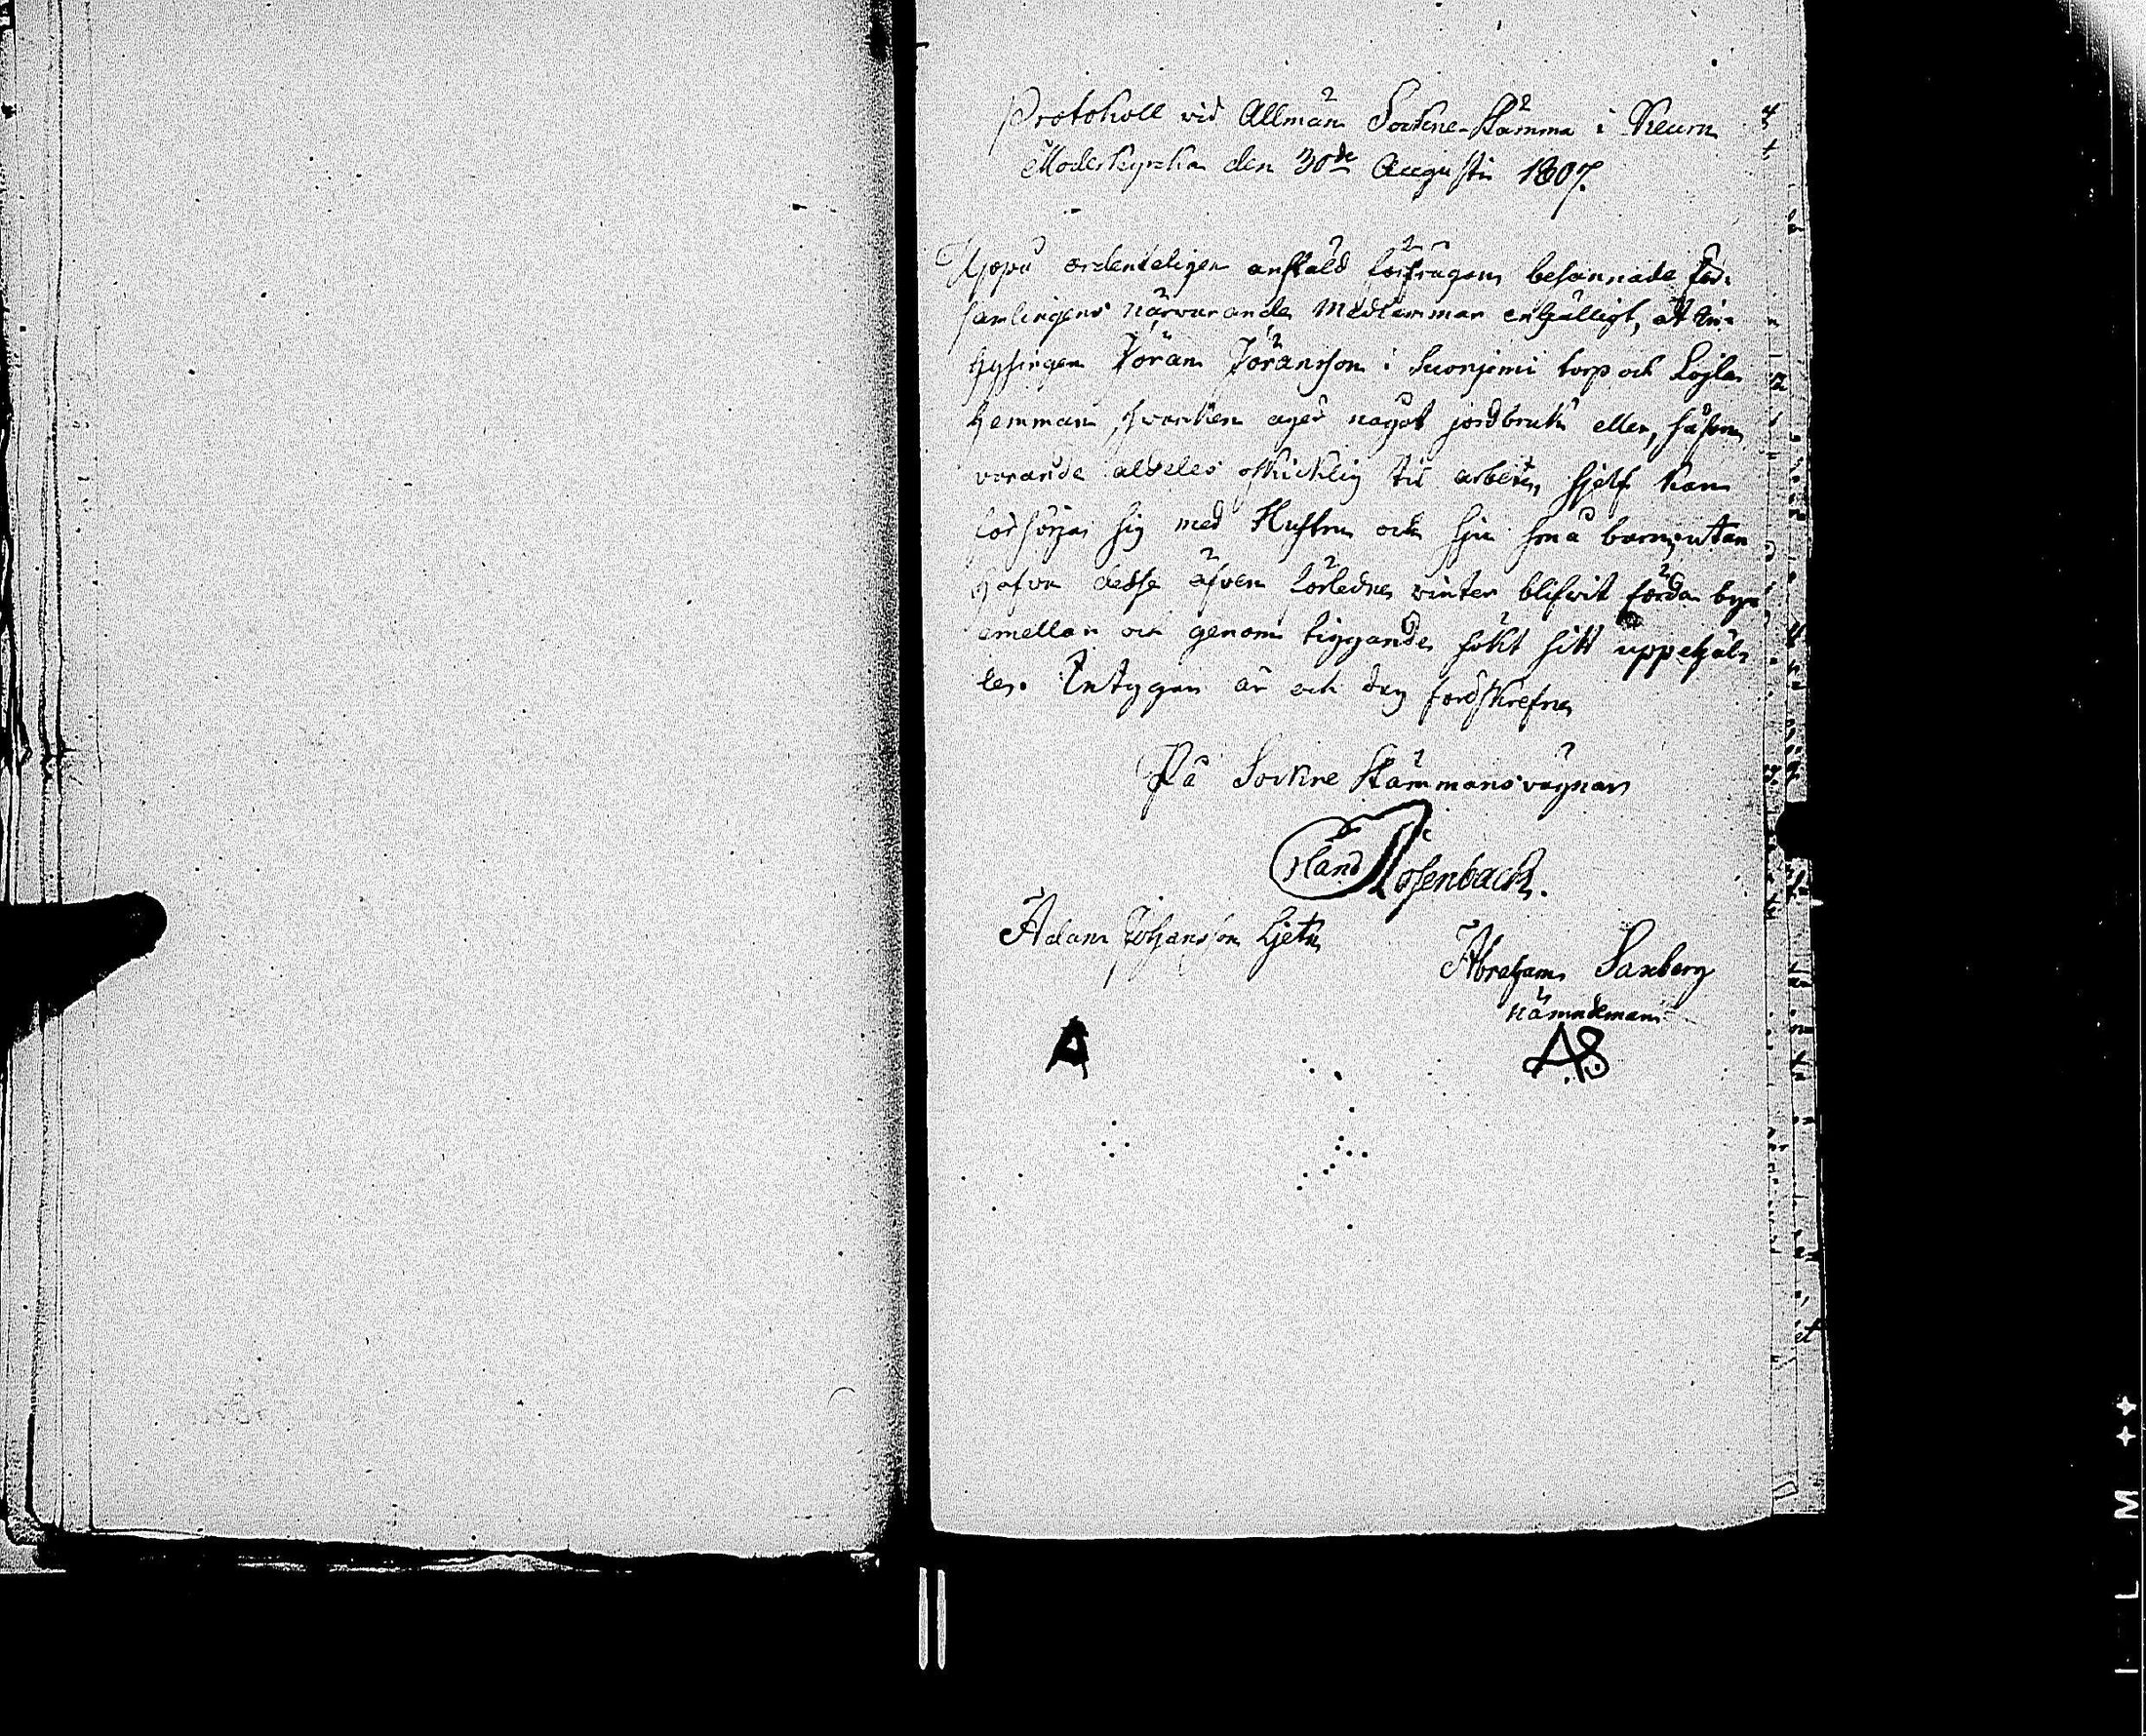 Protokoll vid Allmän Sockne-Stämma i Keuru
Moderkyrka den 30de Augusti 1807.
Uppå ordenteligen anstäld förfrågan besannade För-
samlingens närvarande Medlemmar enhälligt, at In-
hysingen Jöran Jöransson i torp och
hemman, hvarken äger något jordbruk eller, såsom
varande aldeles oskicklig til arbete, sjelf kan
försörja sig med Hustru och sju små barn, utan
hafva desse äfven förledne vinter blifvit förda byar
emellan och genom tiggande sökt sitt uppehäl-
le. Intygan år och dag förrskrefne
På Sockne Stämmans vägnar
Erland Rosenback.
Adam Johansson
Abraham Saxberg
Nämndeman
A
AS
I L M